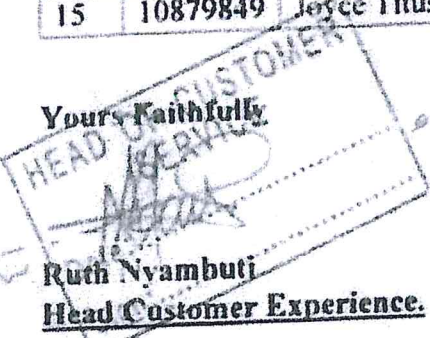 15 10879849 Joyce
Yours Faithfully
HEAD CUSTOMER
SERVICE
Ruth Nyambuti
Head Customer Experience.